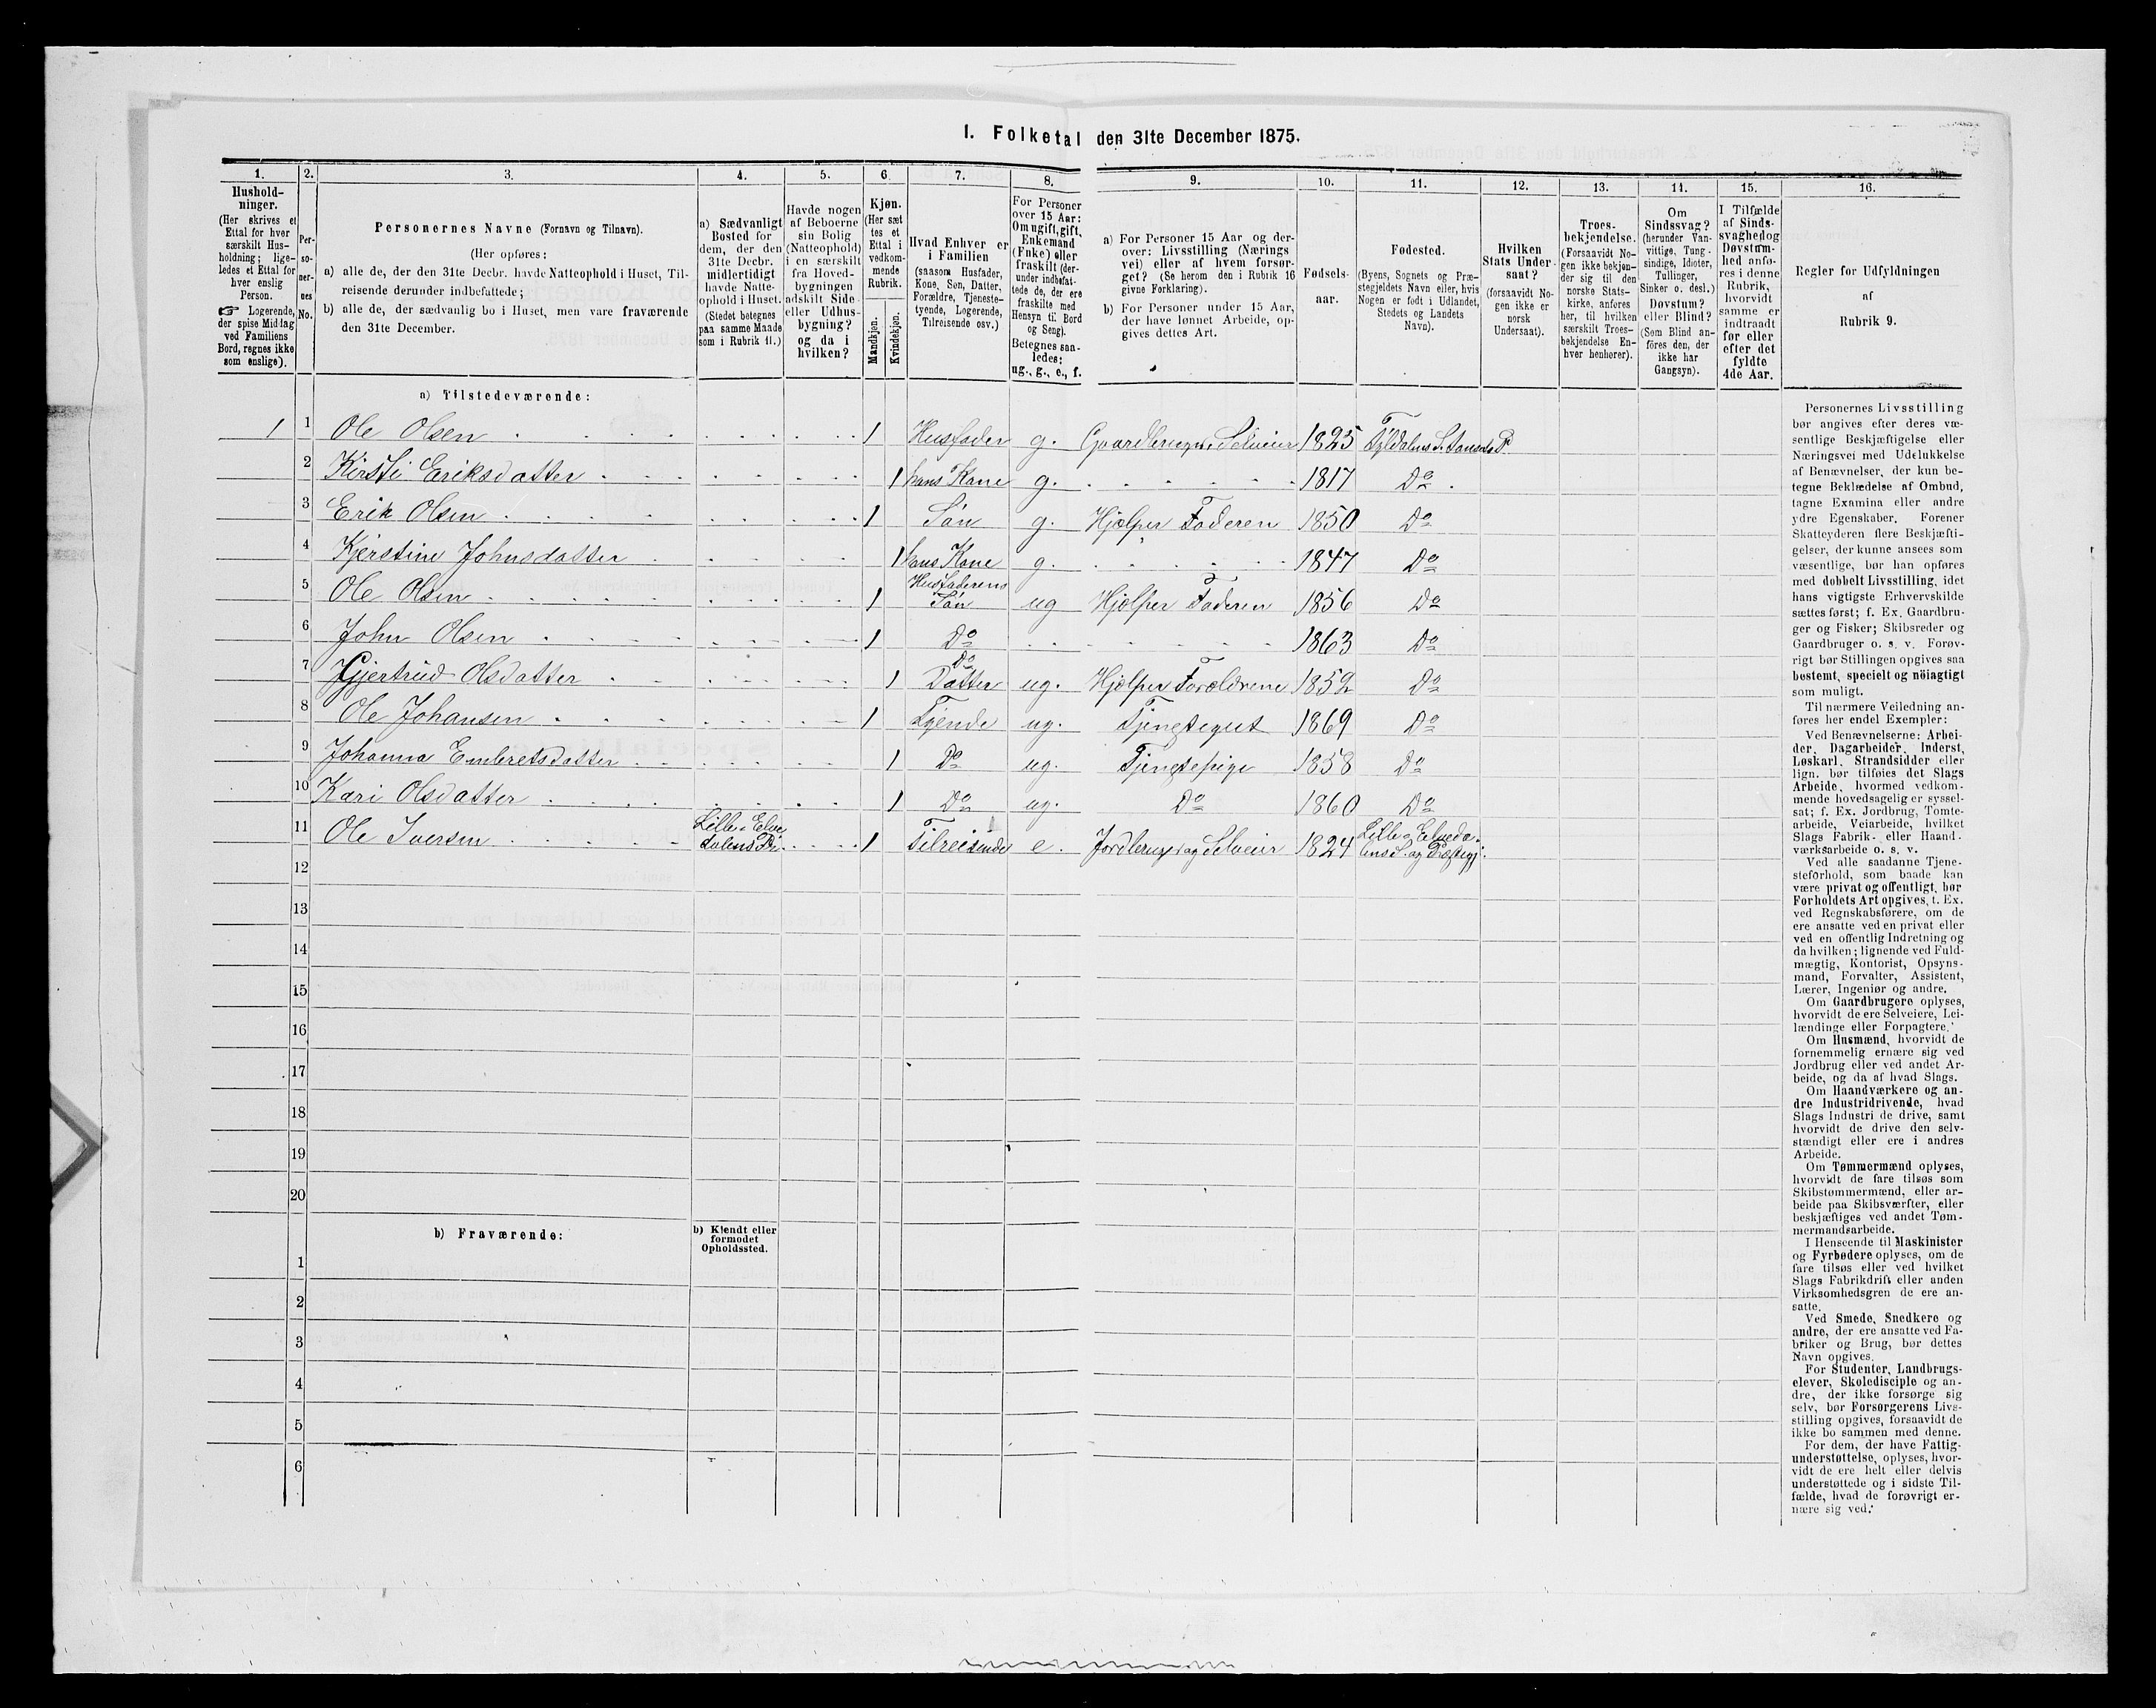 I. Folketal den 31te December 1875.
1.
Hushold-
ninger.
(Her skrives et
Ettal for hver
særskilt Hus-
holdning; lige-
ledes et Ettal for
hver enslig
Person.
☞ Logerende,
der spise Middag
ved Familiens
Bord, regnes ikke
som enslige).
2.
Per-
so-
ner-
nes
No.
3.
Personernes Navne (Fornavn og Tilnavn).
(Her opføres:
a) alle de, der den 31te Decbr. havde Natteophold i Huset, Til-
reisende derunder indbefattede;
b) alle de, der sædvanlig bo i Huset, men vare fraværende
den 31te December.
4.
a) Sædvanligt
Bosted for
dem, der den
31te Decbr.
midlertidigt
havde Natte-
ophold i Huset.
(Stedet betegnes
paa samme Maade
som i Rubrik 11.)
5.
Havde nogen
af Beboerne
sin Bolig
(Natteophold)
i en særskilt
fra Hoved-
bygningen
adskilt Side-
eller Udhus-
bygning?
og da i
hvilken?
6.
Kjøn.
(Her sæt
tes et
Ettal i
vedkom-
mende
Rubrik.
Mandkjøn.
Kvindekjøn.
7.
Hvad Enhver er
i Familien
(saasom Husfader,
Kone, Søn, Datter,
Forældre, Tjeneste-
tyende, Logerende,
Tilreisende osv.)
8.
For Personer
over 15 Aar:
Om ugift, gift,
Enkemand
(Enke) eller
fraskilt (der-
under indbefat-
tede de, der ere
fraskilte med
Hensyn til Bord
og Seng).
Betegnes saa-
ledes:
ug., g., e., f.
9.
a) For Personer 15 Aar og der-
over: Livsstilling (Nærings
vei) eller af hvem forsør-
get? (Se herom den i Rubrik 16
givne Forklaring).
b) For Personer under 15 Aar,
der have lønnet Arbeide, op-
gives dettes Art.
10.
Fødsels-
aar.
11.
Fødested.
(Byens, Sognets og Præ-
stegjeldets Navn eller, hvis
Nogen er født i Udlandet,
Stedets og Landets
Navn).
12.
Hvilken
Stats Under
saat?
(forsaavidt No-
gen ikke er
norsk
Undersaat).
13.
Troes-
bekjendelse.
(Forsaavidt No-
gen ikke bekjen-
der sig til den
norske Stats-
kirke, anføres
her, til hvilken
særskilt Troes-
bekjendelse En-
hver henhører).
14.
Om
Sindssvag?
(herunder Van-
vittige, Tung-
sindige, Idioter,
Tullinger,
Sinker o. desl.)
Døvstum?
eller Blind?
(Som Blind an-
føres den, der
ikke har
Gangsyn).
15.
I Tilfælde
af Sinds-
svaghed og
Døvstum-
hed anfø-
res i denne
Rubrik,
hvorvidt
samme er
indtraadt
før eller
efter det
fyldte
4de Aar.
16.
Regler for Udfyldningen
af
Rubrik 9.
a) Tilstedeværende:
1 1 Ole Olsen 1 Husfader g. Gaardbruger, Selveier 1825 Tyldalens S. Tønsets P.
2 Kirsti Eriksdatter 1 hans Kone g. 1817 Do
3 Erik Olsen 1 Søn g. Hjælper Faderen 1850 Do
4 Kjerstine Johnsdatter 1 hans Kone g. 1847 Do
5 Ole Olsen 1 Husfaderens Søn ug Hjælper Faderen 1856 Do
6 John Olsen 1 Do 1863 Do
7 Gjertrud Olsdatter 1 Do Datter ug. Hjælper Forældrene 1852 Do
8 Ole Johansen 1 Tyende ug. Tjenestegut 1869 Do
9 Johanna Embretsdatter 1 Do ug. Tjenestepige 1858 Do
10 Kari Olsdatter 1 Do ug. Do 1860 Do
11 Ole Iversen Lille Elve dalens Pr. 1 Tilreisende e. Jordbruger og Selveier 1824 Lille Elveda lens S. og Præstegj.
12
13
14
15
16
17
18
19
20
b) Fraværende:
b) Kjendt eller
formodet
Opholdssted.
1
2
3
4
5
6
Personernes Livsstilling
bør angives efter deres væ-
sentlige Beskjæftigelse eller
Næringsvei med Udelukkelse
af Benævnelser, der kun be-
tegne Beklædelse af Ombud,
tagne Examina eller andre
ydre Egenskaber. Forener
Skatteyderen flere Beskjæfti-
gelser, der kunne ansees som
væsentlige, bør han opføres
med dobbelt Livsstilling, idet
hans vigtigste Erhvervskilde
sættes først; f. Ex. Gaardbru-
ger og Fisker; Skibsreder og
Gaardbruger o. s. v. Forøv-
rigt bør Stillingen opgives saa
bestemt, specielt og nøiagtigt
som muligt.
Til nærmere Veiledning an-
føres her endel Exempler:
Ved Benævnelserne: Arbei-
der, Dagarbeider, Inderst,
Løskarl, Strandsidder eller
lign. bør tilføies det Slags
Arbeide, hvormed vedkom-
mende hovedsagelig er syssel-
sat; f. Ex. Jordbrug, Tomte-
arbeide, Veiarbeide, hvilket
Slags Fabrik- eller Haand-
værksarbeide o. s. v.
Ved alle saadanne Tjene-
steforhold, som baade kan
være privat og offentligt, bør
Forholdets Art opgives, t. Ex.
ved Regnskabsførere, om de
ere ansatte ved en privat eller
ved en offentlig Indretning og
da hvilken; lignende ved Fuld-
mægtig, Kontorist, Opsyns-
mand, Forvalter, Assistent,
Lærer, Ingeniør og andre.
Om Gaardbrugere oplyses,
hvorvidt de ere Selveiere, Lei-
lændinge eller Forpagtere.
Om Husmænd, hvorvidt de
fornemmelig ernære sig ved
Jordbrug eller ved andet Ar-
beide, og da af hvad Slags.
Om Haandværkere og an-
dre Industridrivende, hvad
Slags Industri de drive, samt
hvorvidt de drive den selv-
stændigt eller ere i andres
Arbeide.
Om Tømmermænd oplyses,
hvorvidt de fare tilsøs som
Skibstømmermænd, eller ar-
beide paa Skibsværfter, eller
beskjæftiges ved andet Tøm-
mermandsarbeide.
I Henseende til Maskinister
og Fyrbødere oplyses, om de
fare tilsøs eller ved hvilket
Slags Fabrikdrift eller anden
Virksomhedsgren de ere an-
satte.
Ved Smede, Snedkere og
andre, der ere ansatte ved Fa-
briker og Brug, bør dettes
Navn opgives.
For Studenter, Landbrugs-
elever, Skoledisciple og an-
dre, der ikke forsørge sig
selv, bør Forsørgerens Livs-
stilling opgives, forsaavidt de
ikke bo sammen med denne.
For dem, der have Fattig-
understøttelse, oplyses, hvor-
vidt de ere helt eller delvis
understøttede og i sidste Til-
fælde, hvad de forøvrigt er-
nære sig ved.